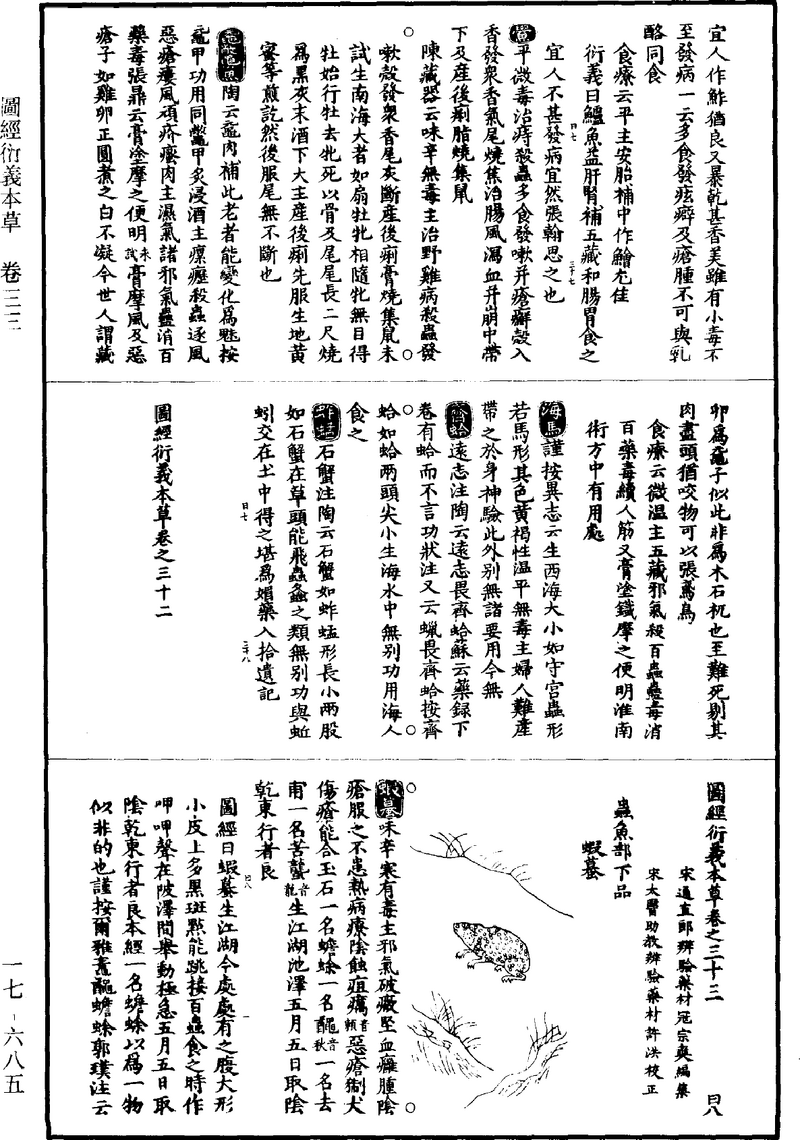 宜人作鮓猶良又暴乾甚香美雖有小毒不
至發病一云多食發痃癖及瘡腫不可與乳
酪同食
食療云平主安胎補中作鱠尤佳
衍義曰鱸魚益肝腎補五藏和腸胃食之
宜人不甚發病宜然張翰思之也
鱟平微毒治痔殺蟲多食發嗽并瘡癬殼入
香發衆香氣尾燒焦治腸風瀉血并崩中帶
下及産後痢脂燒集鼠
陳藏器云味辛無毒主治野雞病殺蟲發
嗽殼發衆香尾灰斷産後痢膏燒集鼠未
試生南海大者如扇牡牝相隨牝無目得
牡始行牡去牝死以骨及尾尾長二尺燒
爲黑灰末酒下大主産後痢先服生地黄
蜜等煎訖然後服尾無不斷也
陶云鼉肉補此老者能變化爲魅按
鼉甲功用同鼈甲炙浸酒主瘰癧殺蟲逐風
惡瘡瘻風頑疥瘙肉主濕氣諸邪氣蠱消百
藥毒張鼎云膏塗摩之便明未試膏摩風及惡
瘡子如雞卵正圓煮之白不凝今世人謂藏
卵爲鼉子似此非爲木石机也至難死剔其
肉盡頭猶咬物可以張鳶鳥
食療云微温主五藏邪氣殺百蟲蠱毒消
百藥毒續人筋又膏塗鐵摩之便明淮南
術方中有用處
海馬謹按異志云生西海大小如守宫蟲形
若馬形其色黄褐性温平無毒主婦人難産
帶之於身神驗此外別無諸要用今無
齊蛤遠志注陶云遠志畏齊蛤蘇云藥録下
卷有蛤而不言功狀注又云蝋畏齊蛤按齊
蛤如蛤兩頭尖小生海水中無別功用海人
食之
蚱蜢石蟹注陶云石蟹如蚱蜢形長小兩股
如石蟹在草頭能飛蟲螽之類無別功與蚯
蚓交在土中得之堪爲媚藥入拾遺記
圖經衍義本草卷之三十二
圖經衍義本草卷之三十三 日八
宋通直郎辨驗藥材寇宗奭編集
宋太醫助教辨驗藥材許洪校正
蟲魚部下品
蝦蟇
蝦蟇味辛寒有毒主邪氣破癥堅血癰腫陰
瘡服之不患熱病療陰蝕疽癘音賴惡瘡猘犬
傷瘡能合玉石一名蟾蜍一名䵷音秋一名去
甫一名苦蠪音龍生江湖池澤五月五日取陰
乾東行者良
圖經曰蝦蟇生江湖今處處有之腹大形
小皮上多黑斑點能跳接百蟲食之時作
呷呷聲在陂澤間舉動極急五月五日取
陰乾東行者良本經一名蟾蜍以爲一物
似非的也謹按爾雅鼁䵷蟾蜍郭璞注云
圖經衍義本草 卷三三
一七－六八五